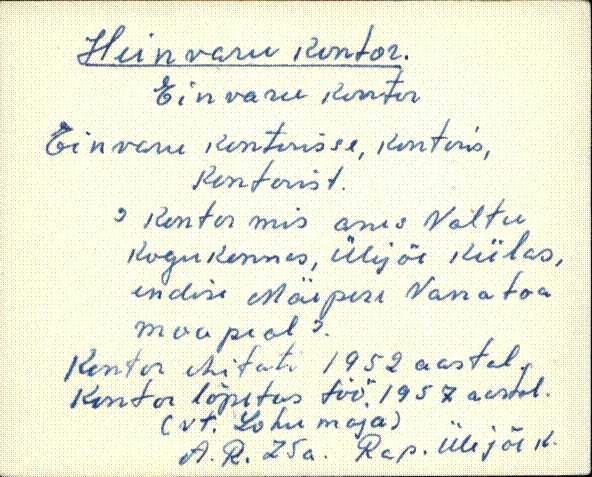 Heinvaru kontor.
Einvaru kontor
Einvaru kontorisse, kontoris,
kontorist.
? kontor mis asus Valtu
kogukonnas, Ülejõe külas,
endise Mäepere Vanatoa
maa peal?.
Kontor ehitati 1952 aastal,
Kontor lõpetas töö, 1957 aastal.
(vt. Lohu maja)
A. R. 75a. Rap. Ülejõe k.